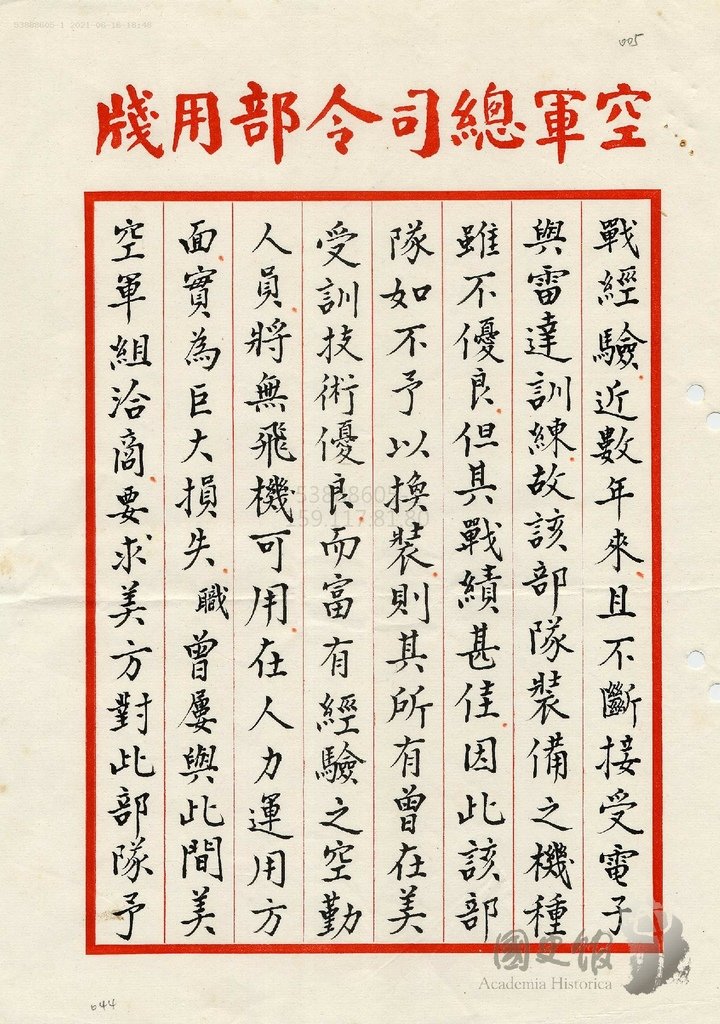 53888605-1 2021-06-16 16:48
005
空軍總司令部用牋
戰經驗近數年來且不斷接受電子
與雷達訓練故該部隊裝備之機種
雖不優良但其戰績甚佳因此該部
隊如不予以換裝則其所有曾在美
受訓技術優良而富有經驗之空勤
人員將無飛機可用在人力運用方
面實為巨大損失職曾屢與此間美
空軍組洽商要求美方對此部隊予
國史館
Academia Historica
644